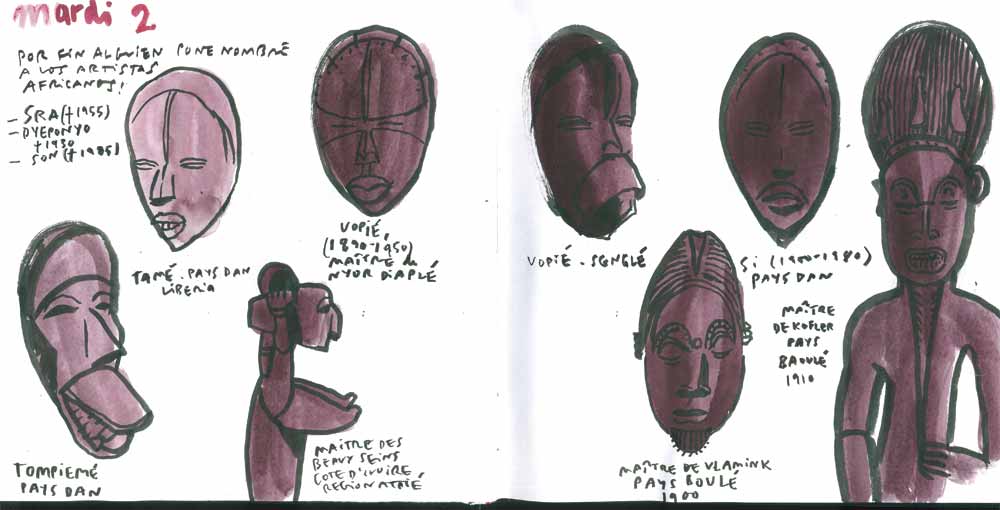 mardi 2
POR FIN ALGUIEN PONE NOMBRE
A LOS ARTISTAS
AFRICANOS!
— SRA (†1955)
— DYEPONYO
†1930
— SON (†1985)
TAMÉ. PAYS DAN
LIBERIA
VOPIÉ,
(1890-1950)
MAÎTRE de
NYOR DIAPLÉ
TOMPIEMÉ
PAYS DAN
MAÎTRE DES
BEAUX SEINS
COTE D'IVOIRE
REGION ATTIÉ
VOPIÉ - SENGLÉ
Si (1900-1980)
PAYS DAN
MAÎTRE
DE KOFLER
PAYS
BAOULÉ
1910
MAÎTRE DE VLAMINK
PAYS BOULÉ
1900